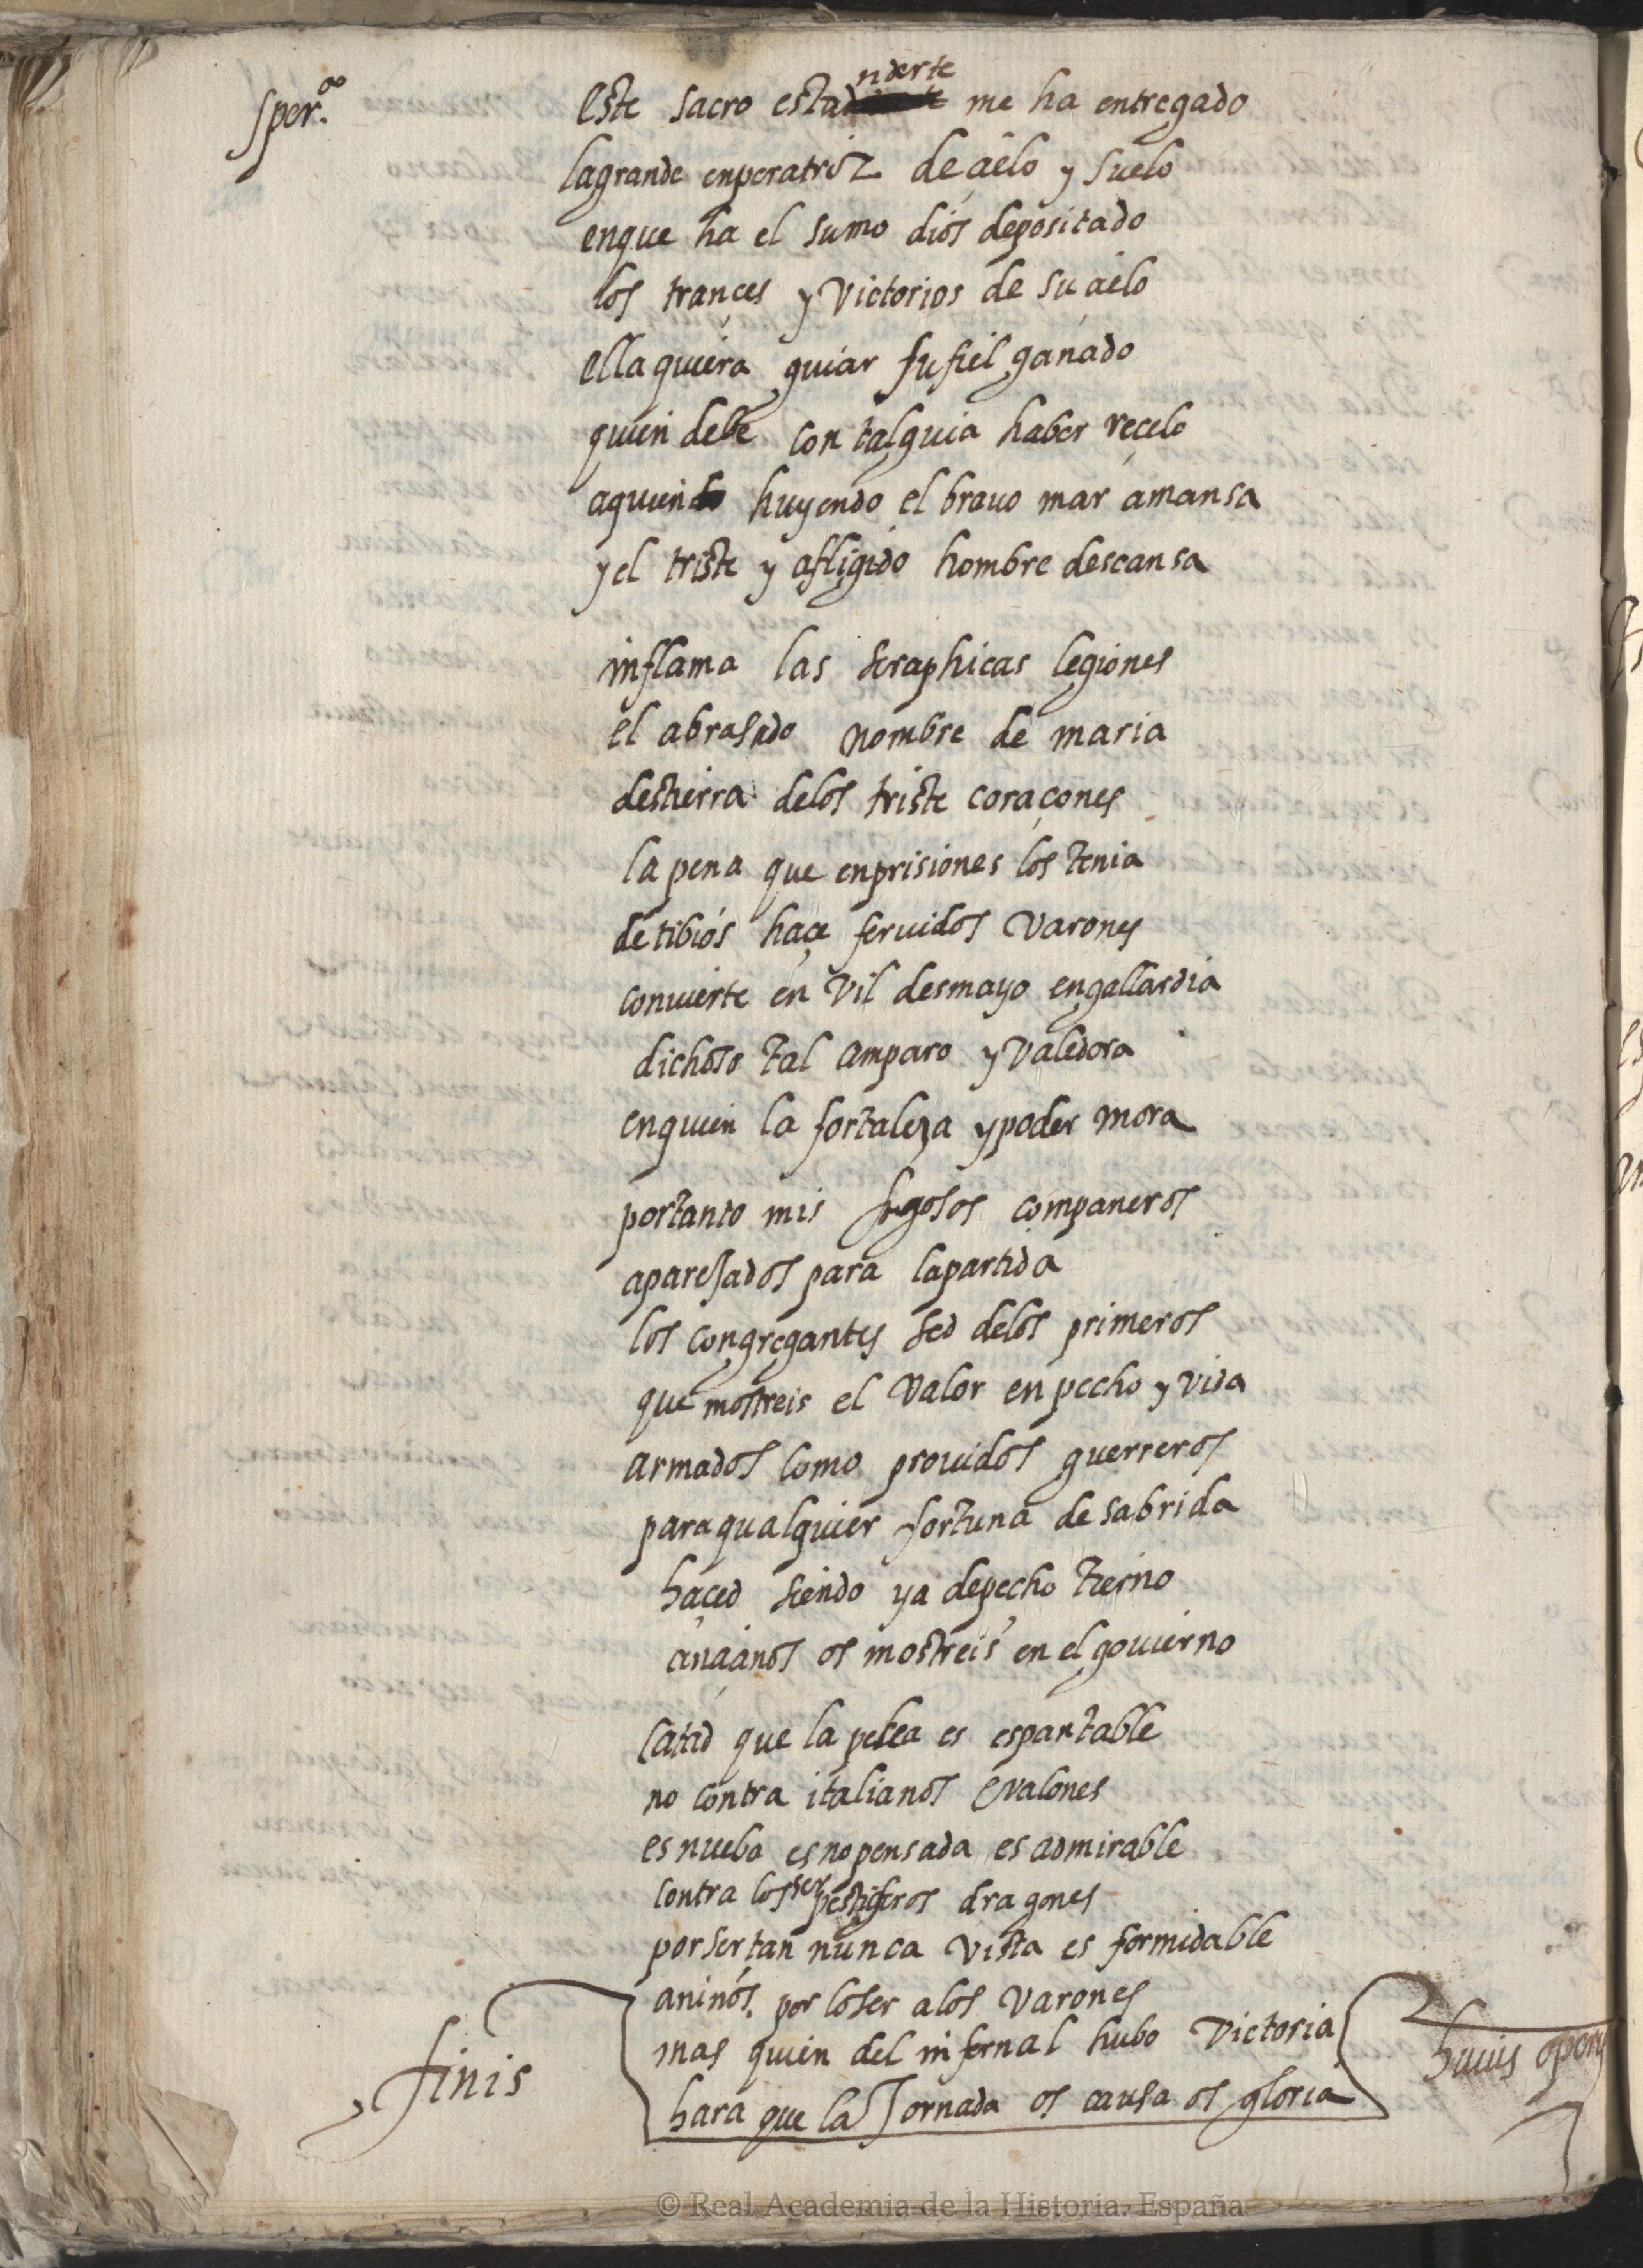 sper.ᵃ
este sacro estadnderte me ha entregado
lagrande enperatriz de çielo y suelo
enque ha el sumo dios depositado
los trançes y victorios de su çielo
ella quiera guiar su fiel ganado
quien debe con talguia haber reçelo
aquien huyendo el brauo mar amansa
y el triste y afligido hombre descansa
inflama las seraphicas legiones
el abrasado nombre de maria
destierra delos triste coraçones
la pena que enprisiones los tenia
de tibios haçe feruidos varones
conuierte en vil desmayo engallardia
dichoso tal amparo y validora
enquien la fortaleza y poder mora
portanto mis fogosos companeros
aparejados para lapartida
los congregantes sed delos primeros
que mostreis el valor en pecho y vida
armados como prouidos guerreros
paraqualquier fortuna desabrida
haçed siendo ya depecho tierno
ançianos os mostreis en el gouierno
catad que la pelea es espantable
no contra italianos o valones
es nueba esnopensada es admirable
contra los ser pestiferos dragones
porsertan nunca vista es formidable
aninos. por loser alos varones
mas quien del infernal hubo victoria
hara que la Jornada os causa os gloria
finis
huius operis
© Real Academia de la Historia. España